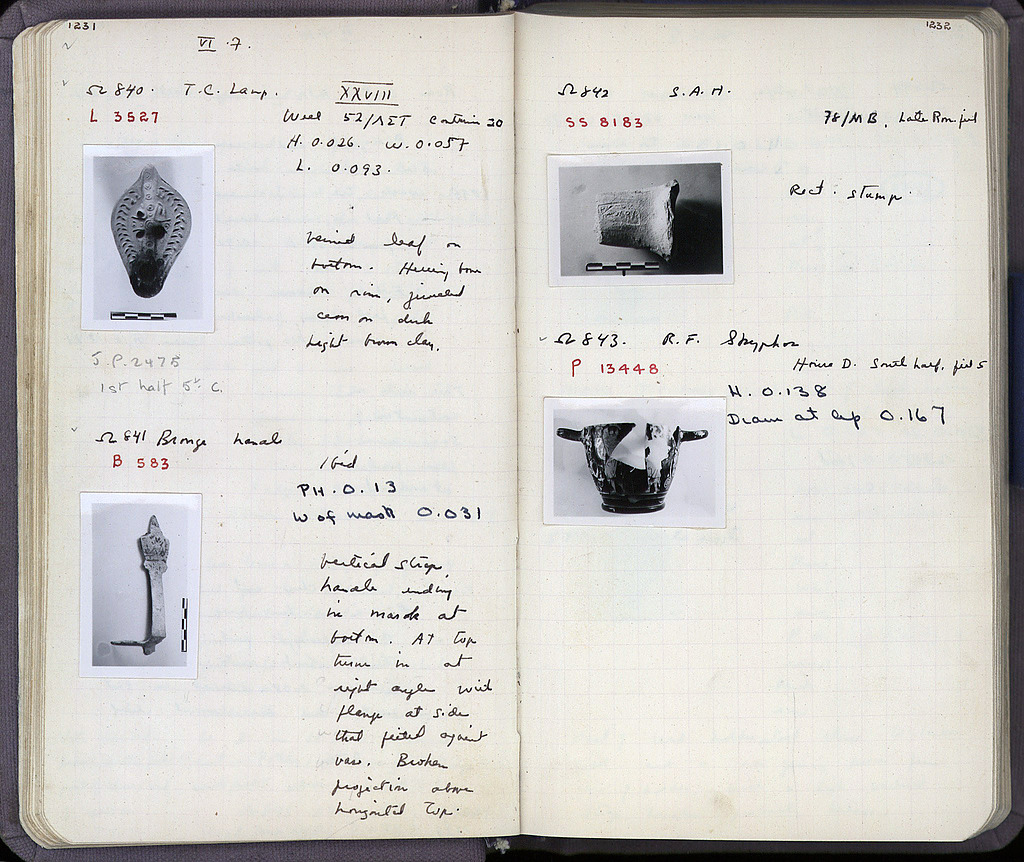 1231
VI . 7.
Ω 840. T.C. Lamp. XXVIII
L 3527
Well 52/ΛΣΤ Container 30
H. 0.026. W. 0.057
L. 0.093.
veined leaf on
bottom. Herring bone
on rim, jeweled
cross on disk
Light brown clay.
J.P. 2475
1st half 5th C.
Ω 841 Bronze handle
B 583
Ibid
PH. 0.13
W of mask 0.031
Vertical strap
handle ending
in mask at
bottom. At top
turns in at
right angle with
flange at side
that fitted against
vase. Broken
projection above
horizontal top.
1232
Ω 842 S.A.H.
SS 8183
78/MB, Late Rom. fill
Rect. stamp.
Ω 843. R.F. Skyphos
P 13448
House D. South half, pit 5
H. 0.138
Diam at lip 0.167